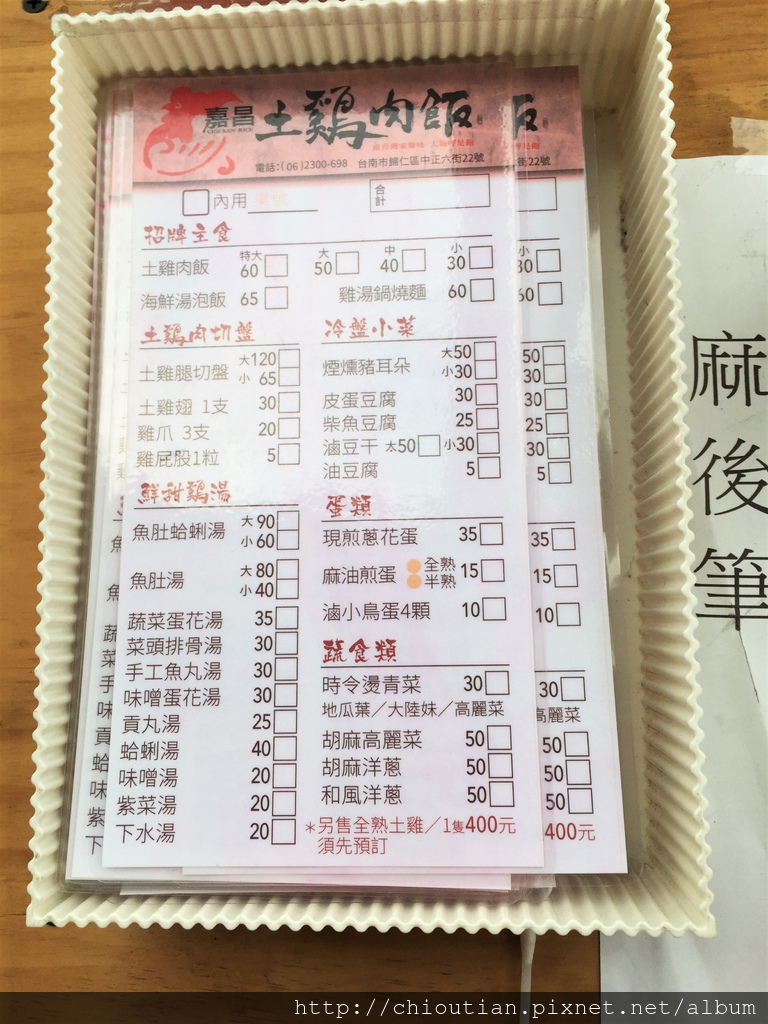 嘉昌 土鷄肉飯
CHICKEN RICE
電話:(06)2300-698 台南市歸仁區中正六街22號
內用 桌號
合計
招牌主食
土雞肉飯 特大60 大50 中40 小30
海鮮湯泡飯 65 雞湯鍋燒麵 60
土鷄肉切盤
土雞腿切盤 大120 小 65
土雞翅 1支 30
雞爪 3支 20
雞屁股1粒 5
鮮甜鷄湯
魚肚蛤蜊湯 大90 小60
魚肚湯 大80 小40
蔬菜蛋花湯 35
菜頭排骨湯 30
手工魚丸湯 30
味噌蛋花湯 30
貢丸湯 25
蛤蜊湯 40
味噌湯 20
紫菜湯 20
下水湯 20
冷盤小菜
煙燻豬耳朵 大50 小30
皮蛋豆腐 30
柴魚豆腐 25
滷豆干 大50 小30
油豆腐 5
蛋類
現煎蔥花蛋 35
麻油煎蛋 全熟 半熟 15
滷小鳥蛋4顆 10
蔬食類
時令燙青菜 30
地瓜葉／大陸妹／高麗菜
胡麻高麗菜 50
胡麻洋蔥 50
和風洋蔥 50
＊另售全熟土雞／1隻400元
須先預訂
飯
街22號
30
60
50
30
30
25
30
5
35
15
10
30
高麗菜
50
50
50
400元
麻
後
筆
http://chioutian.pixnet.net/album